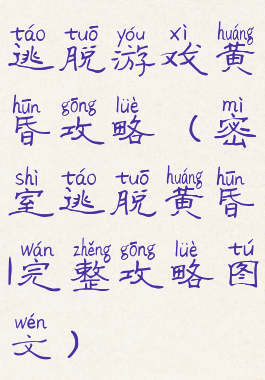 táo tuō yóu xì huáng
逃脱游戏黄
hūn gōng lüè mì
昏攻略（密
shì táo tuō huáng hūn
室逃脱黄昏
wán zhěng gōng lüè tú
完整攻略图
wén
文）